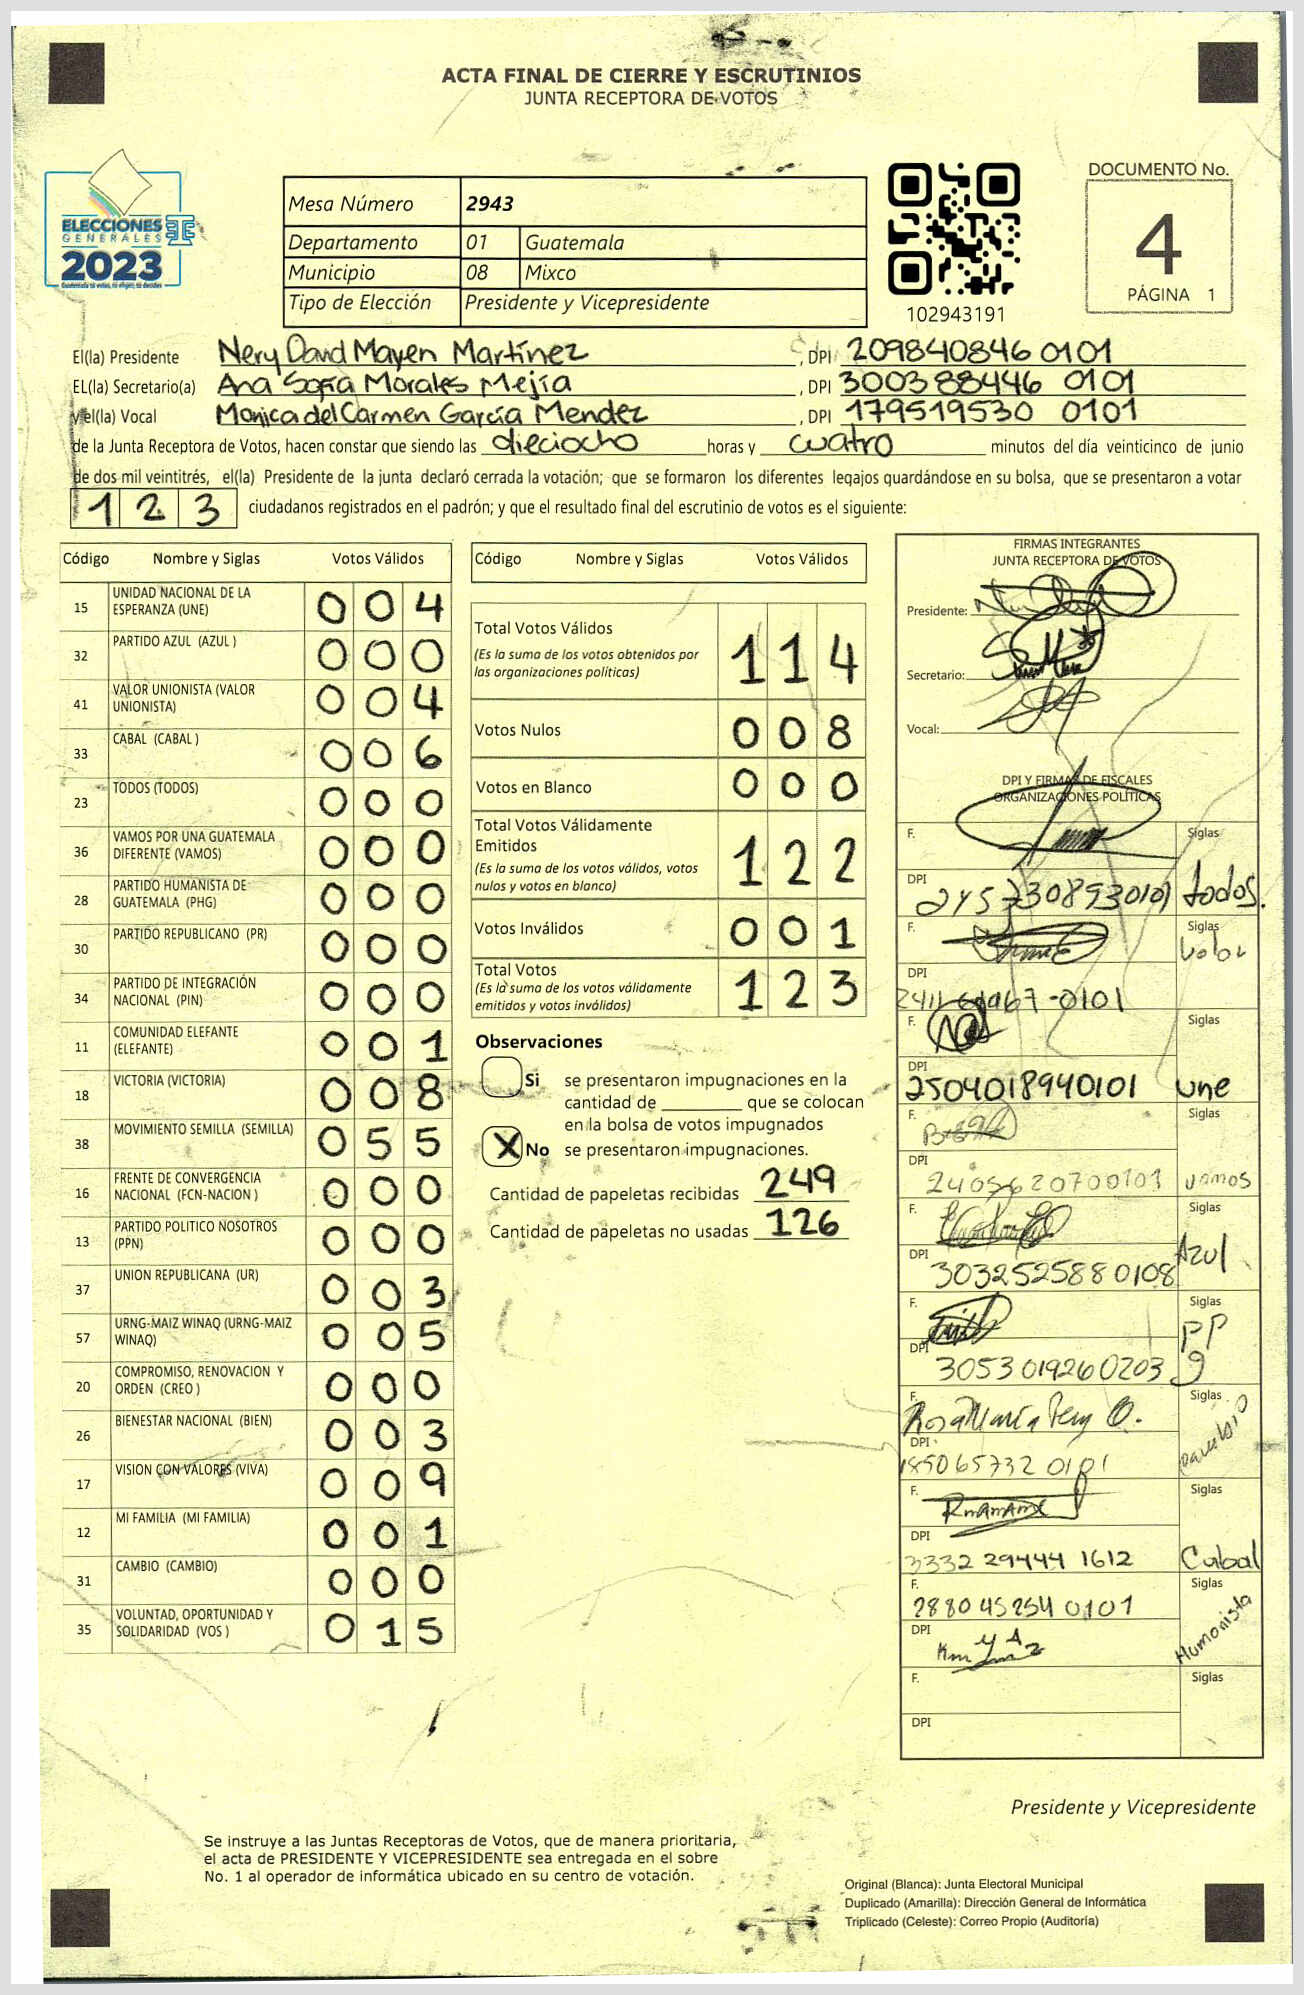 ACTA FINAL DE CIERRE Y ESCRUTINIOS
JUNTA RECEPTORA DE VOTOS
ELECCIONES
GENERALES
2023
Mesa Número 2943
Departamento 01 Guatemala
Municipio 08 Mixco
Tipo de Elección Presidente y Vicepresidente
102943191
DOCUMENTO No.
4
PÁGINA 1
El(la) Presidente Nery David Mayen Martínez, DPI 209840846 0101
EL(la) Secretario(a) Ana Sofía Morales Mejía, DPI 300388446 0101
y el(la) Vocal Monica del Carmen García Mendez, DPI 179519530 0101
de la Junta Receptora de Votos, hacen constar que siendo las dieciocho horas y cuatro minutos del día veinticinco de junio
de dos mil veintitrés, el(la) Presidente de la junta declaró cerrada la votación; que se formaron los diferentes legajos guardándose en su bolsa, que se presentaron a votar
123 ciudadanos registrados en el padrón; y que el resultado final del escrutinio de votos es el siguiente:
Código Nombre y Siglas Votos Válidos
15 UNIDAD NACIONAL DE LA ESPERANZA (UNE) 004
32 PARTIDO AZUL (AZUL ) 000
41 VALOR UNIONISTA (VALOR UNIONISTA) 004
33 CABAL (CABAL ) 006
23 TODOS (TODOS) 000
36 VAMOS POR UNA GUATEMALA DIFERENTE (VAMOS) 000
28 PARTIDO HUMANISTA DE GUATEMALA (PHG) 000
30 PARTIDO REPUBLICANO (PR) 000
34 PARTIDO DE INTEGRACIÓN NACIONAL (PIN) 000
11 COMUNIDAD ELEFANTE (ELEFANTE) 001
18 VICTORIA (VICTORIA) 008
38 MOVIMIENTO SEMILLA (SEMILLA) 055
16 FRENTE DE CONVERGENCIA NACIONAL (FCN-NACION ) 000
13 PARTIDO POLITICO NOSOTROS (PPN) 000
37 UNION REPUBLICANA (UR) 003
57 URNG-MAIZ WINAQ (URNG-MAIZ WINAQ) 005
20 COMPROMISO, RENOVACION Y ORDEN (CREO ) 000
26 BIENESTAR NACIONAL (BIEN) 003
17 VISION CON VALORES (VIVA) 009
12 MI FAMILIA (MI FAMILIA) 001
31 CAMBIO (CAMBIO) 000
35 VOLUNTAD, OPORTUNIDAD Y SOLIDARIDAD (VOS ) 015
Código Nombre y Siglas Votos Válidos
Total Votos Válidos 114
(Es la suma de los votos obtenidos por
las organizaciones políticas)
Votos Nulos 008
Votos en Blanco 000
Total Votos Válidamente
Emitidos 122
(Es la suma de los votos válidos, votos
nulos y votos en blanco)
Votos Inválidos 001
Total Votos 123
(Es la suma de los votos válidamente
emitidos y votos inválidos)
Observaciones
Si se presentaron impugnaciones en la
cantidad de ________ que se colocan
en la bolsa de votos impugnados
X No se presentaron impugnaciones.
Cantidad de papeletas recibidas 249
Cantidad de papeletas no usadas 126
FIRMAS INTEGRANTES
JUNTA RECEPTORA DE VOTOS
Presidente:
Secretario:
Vocal:
DPI Y FIRMAS DE FISCALES
ORGANIZACIONES POLÍTICAS
F. Siglas
DPI todos.
F. Siglas
Valor
DPI
F. Siglas
DPI
2504018940101 une
F. Siglas
DPI
2405620700101 vamos
F. Siglas
Azul
DPI 3032525880108
F. Siglas
PP
g
DPI
3053019260203
F. Siglas
Rosa María
DPI
185065732 0101
F. Siglas
DPI
3332 29444 1612 Cabal
F. Siglas
2880 45254 0101
Humanista
DPI
F. Siglas
DPI
Presidente y Vicepresidente
Se instruye a las Juntas Receptoras de Votos, que de manera prioritaria,
el acta de PRESIDENTE Y VICEPRESIDENTE sea entregada en el sobre
No. 1 al operador de informática ubicado en su centro de votación.
Original (Blanca): Junta Electoral Municipal
Duplicado (Amarilla): Dirección General de Informática
Triplicado (Celeste): Correo Propio (Auditoría)